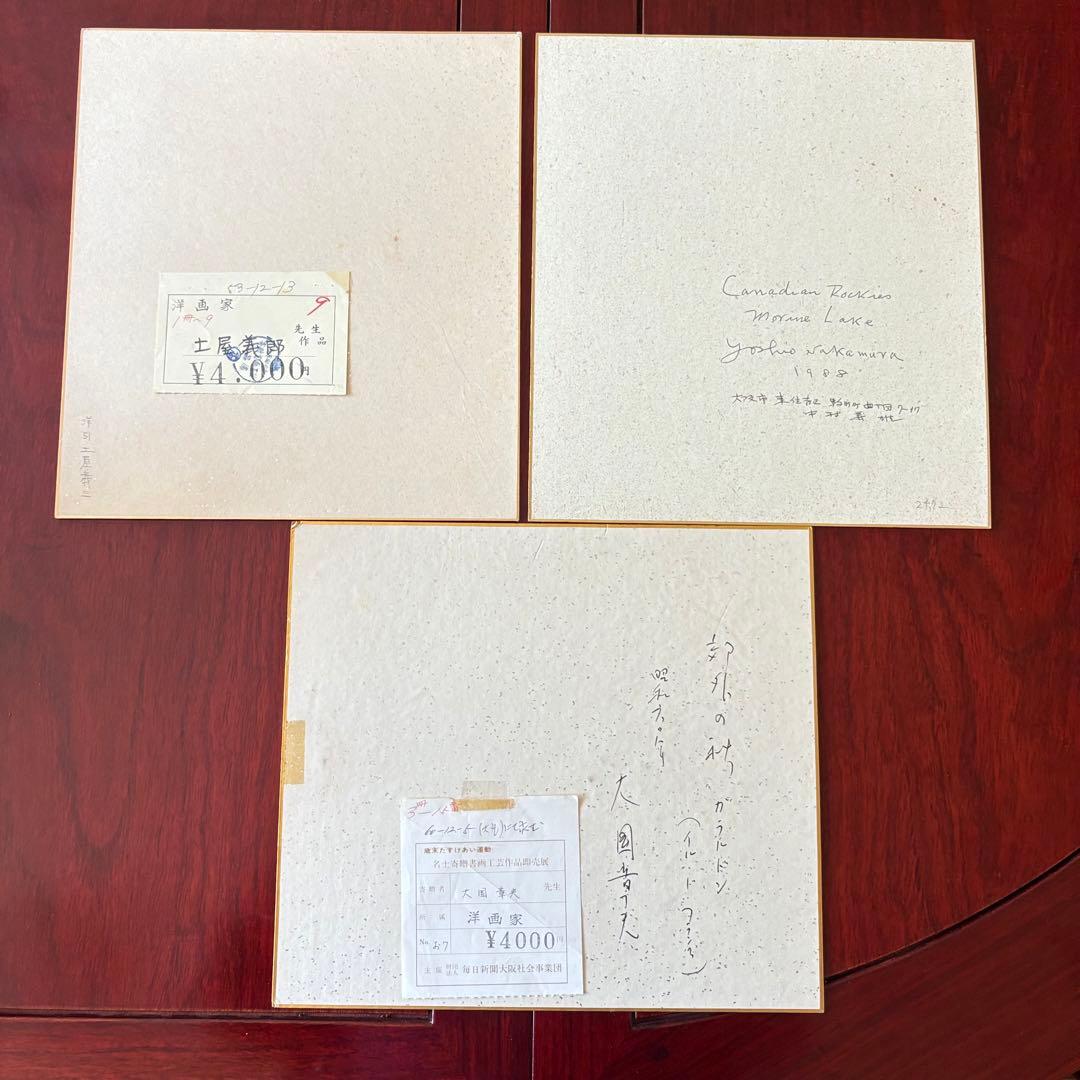 53-12-13
洋画家
9
1冊〜9
先生
作品
土屋義郎
¥4.000円
Canadian Rockies
Morine Lake
Yoshio Nakamura
1988
大阪市 東住吉区
中村
郊外の秋 ガラルドン
(イル・ド・フランス)
昭和六〇年
大国章夫
3冊-15番
60-12-5
歳末たすけあい運動
名士寄贈書画工芸作品即売展
寄贈者 大国章夫 先生
所属 洋画家
No. お7 ¥4000円
主催 財団法人 毎日新聞大阪社会事業団